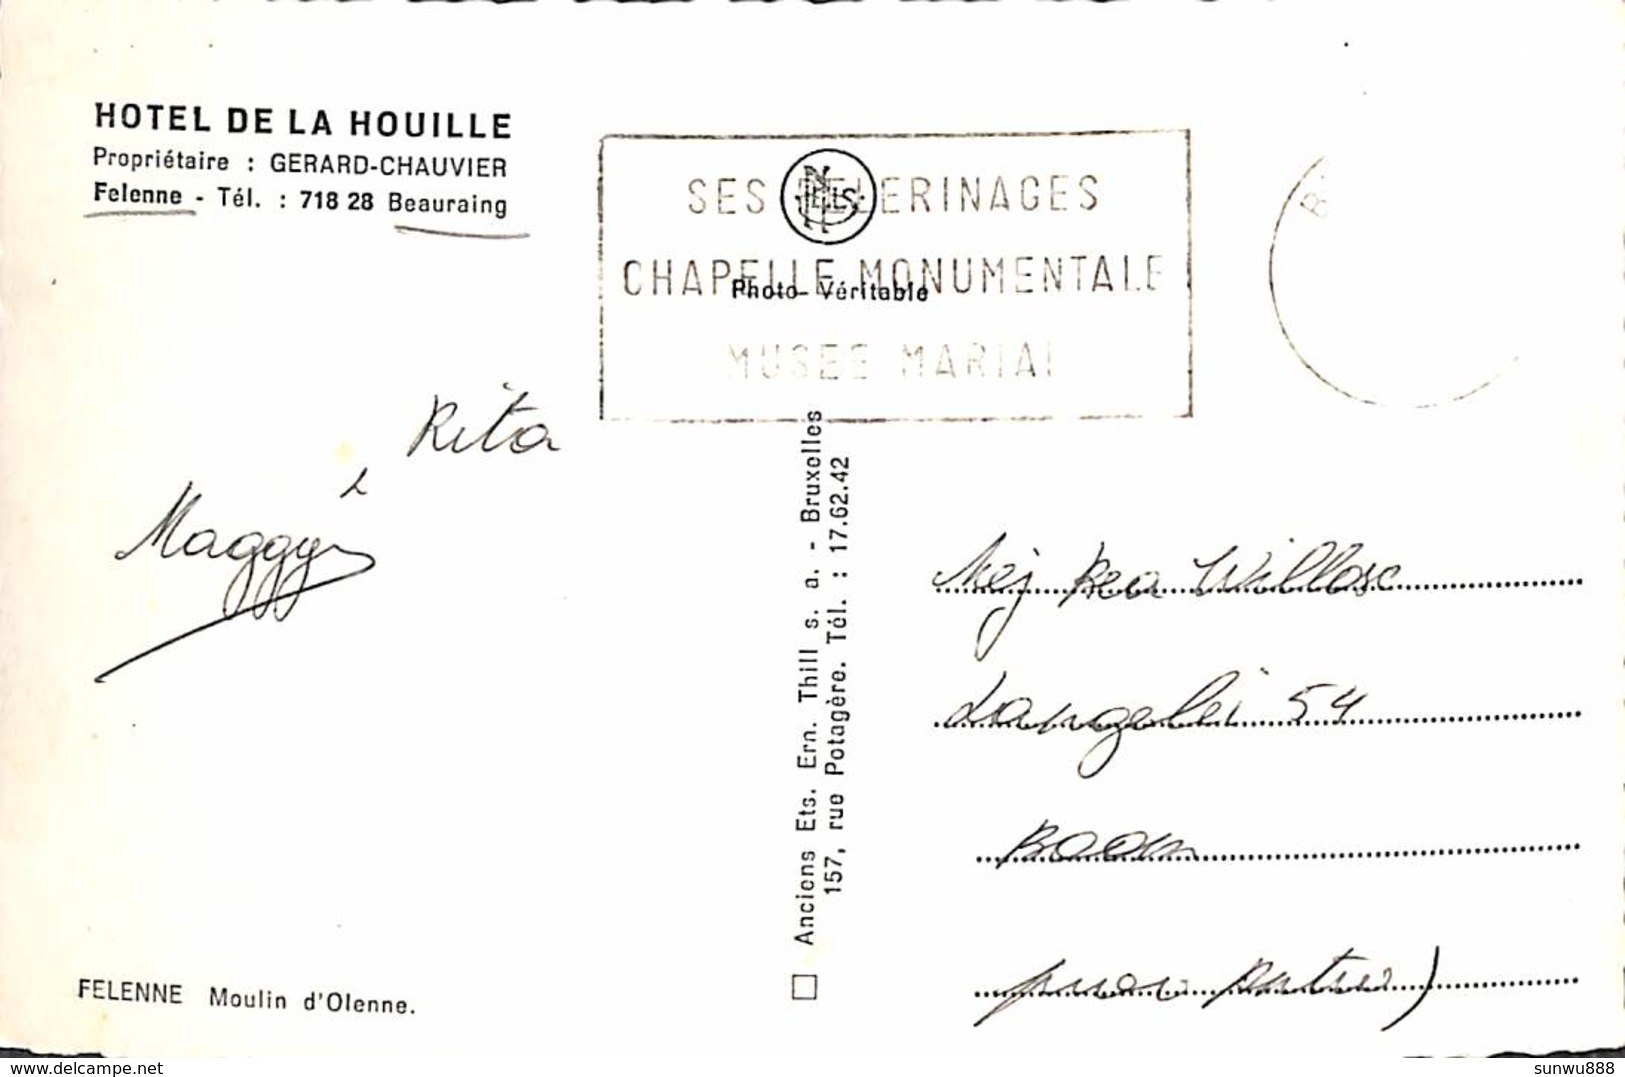 HOTEL DE LA HOUILLE
Propriétaire : GERARD-CHAUVIER
Felenne - Tél. : 718 28 Beauraing
SES PELERINAGES
CHAPELLE MONUMENTALE
MUSEE MARIAL
NELS
Photo Véritable
B
Rita
Maggy
Anciens Ets. Ern. Thill s. a. - Bruxelles
157, rue Potagère. Tél. : 17.62.42
Mej Rea Willose
Langelei 54
Boom
(prov Antw)
FELENNE Moulin d'Olenne.
delcampe.net
sunwu888